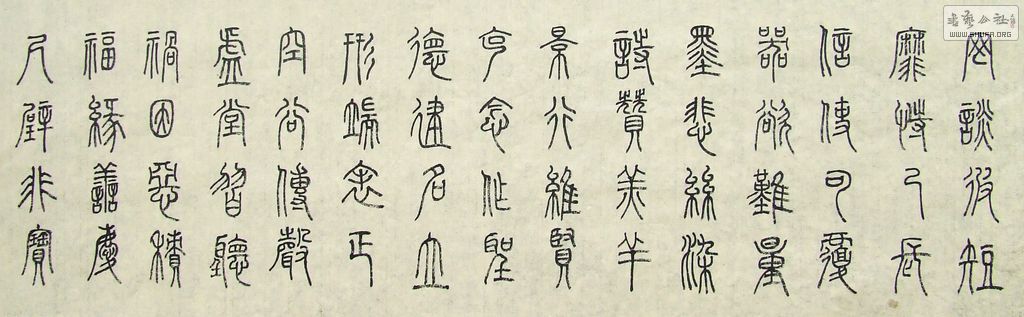 罔談彼短
靡恃己長
信使可覆
器欲難量
墨悲絲染
詩贊羔羊
景行維賢
克念作聖
德建名立
形端表正
空谷傳聲
虛堂習聽
禍因惡積
福緣善慶
尺璧非寶
书艺公社
WWW.SHUFA.ORG